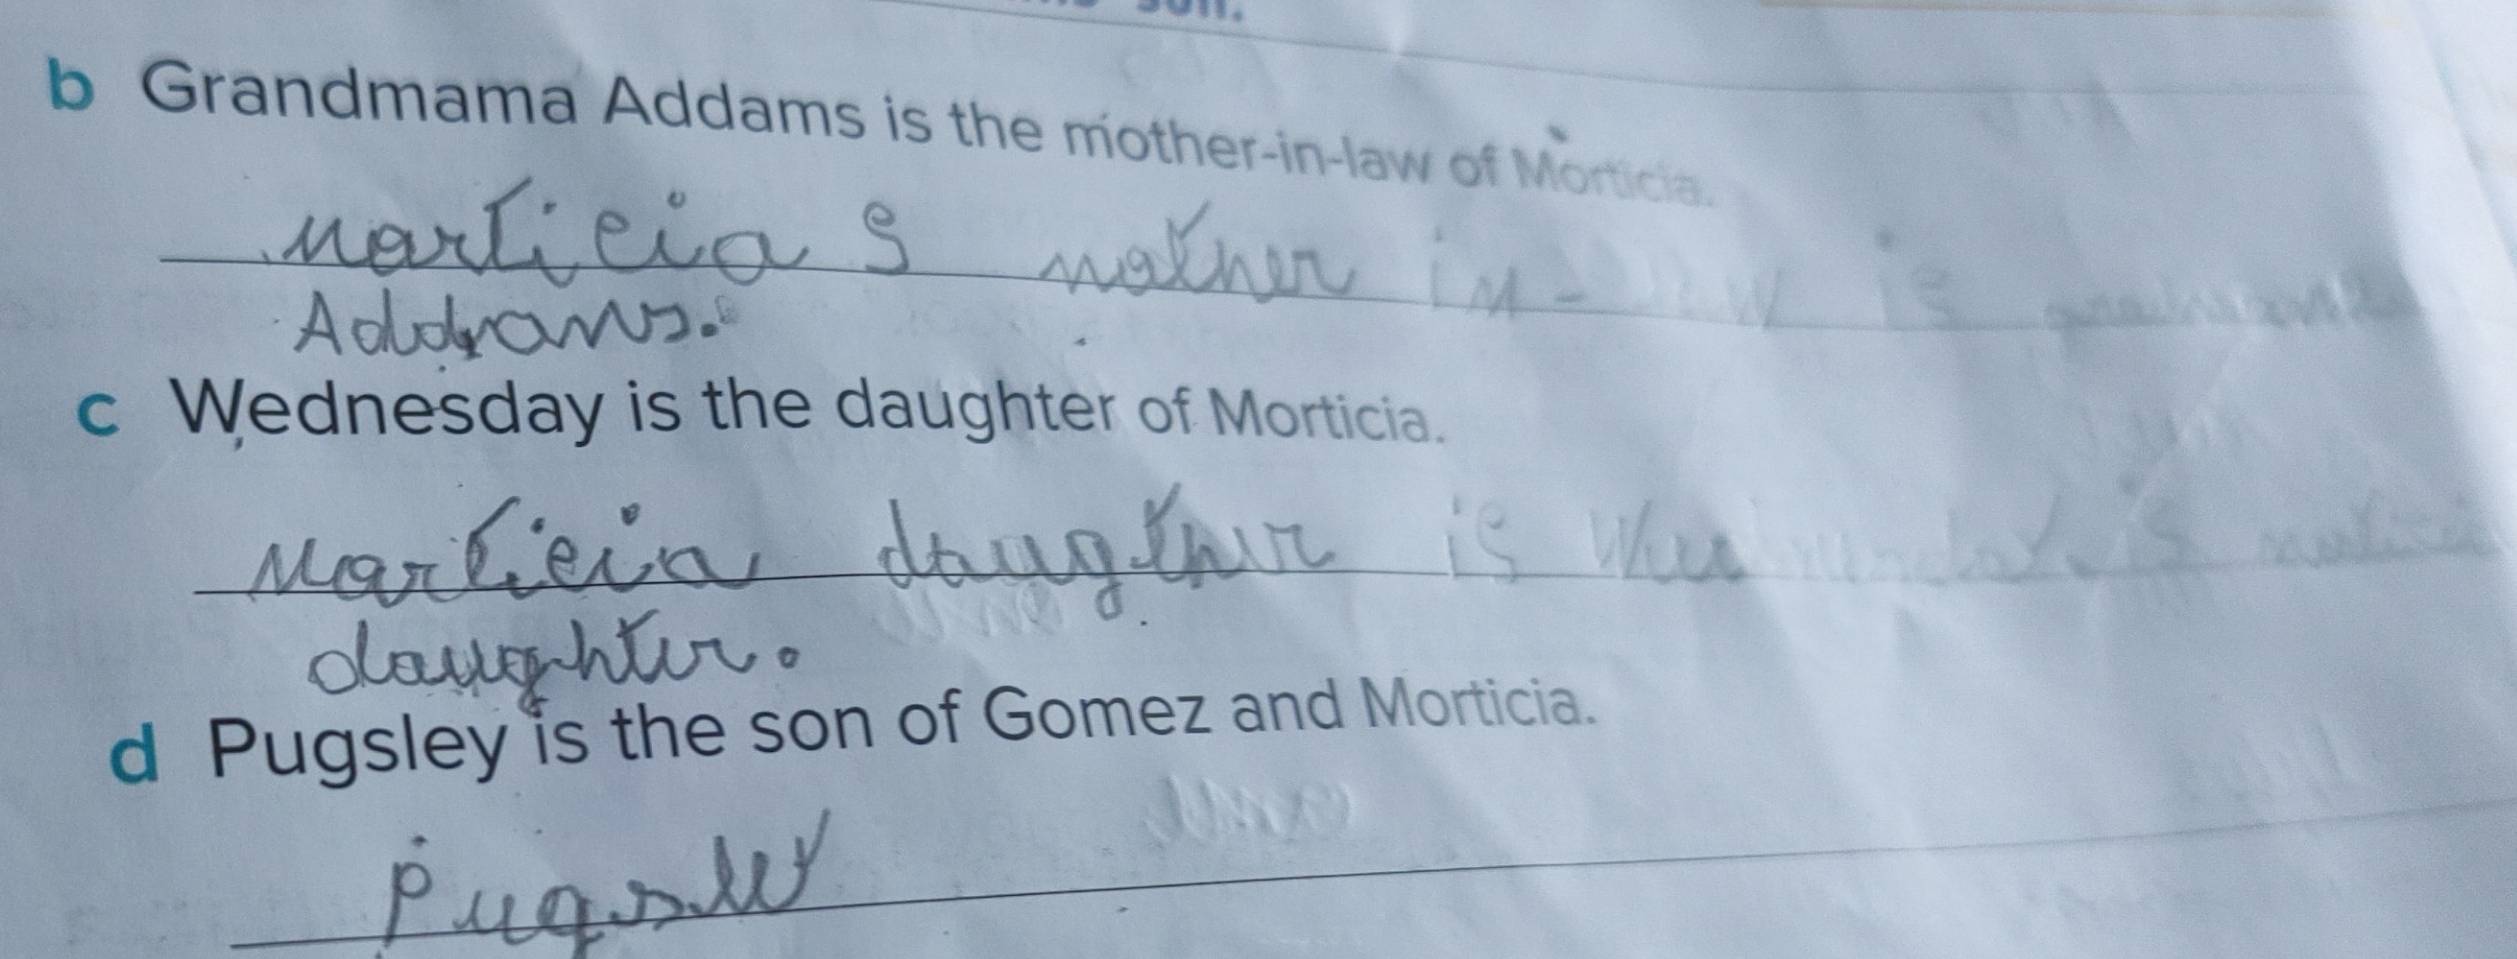 son.
b Grandmama Addams is the mother-in-law of Morticia.
Marticia s mother in- is
Addams.
c Wednesday is the daughter of Morticia.
Marticia daugther is
daughter.
d Pugsley is the son of Gomez and Morticia.
Pugsley